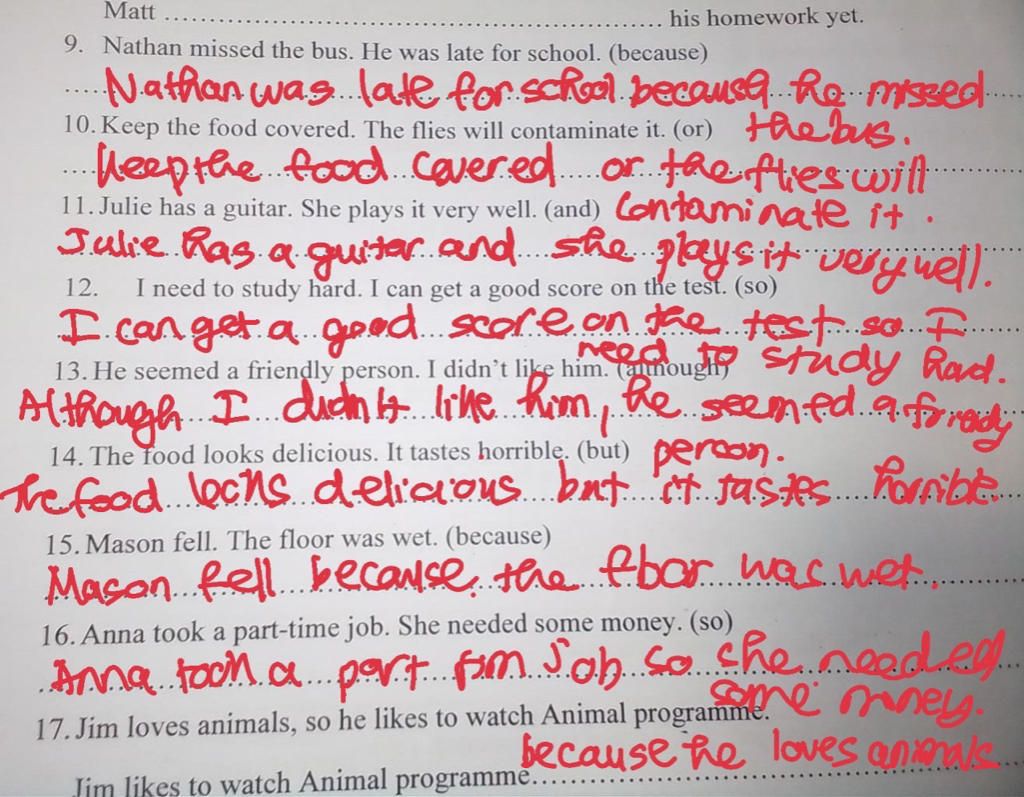 Matt ................................................................ his homework yet.
9. Nathan missed the bus. He was late for school. (because)
Nathan was late for school because he missed
the bus.
10. Keep the food covered. The flies will contaminate it. (or)
Keep the food covered or the flies will
contaminate it.
11. Julie has a guitar. She plays it very well. (and)
Julie has a guitar and she plays it very well.
12. I need to study hard. I can get a good score on the test. (so)
I can get a good score on the test so I
need to study hard.
13. He seemed a friendly person. I didn't like him. (although)
Although I didn't like him, he seemed a fready
person.
14. The food looks delicious. It tastes horrible. (but)
The food looks delicious but it tastes horrible.
15. Mason fell. The floor was wet. (because)
Mason fell because the floor was wet.
16. Anna took a part-time job. She needed some money. (so)
Anna took a part tim Job so she needed
some money.
17. Jim loves animals, so he likes to watch Animal programme.
because he loves animals
Jim likes to watch Animal programme................................